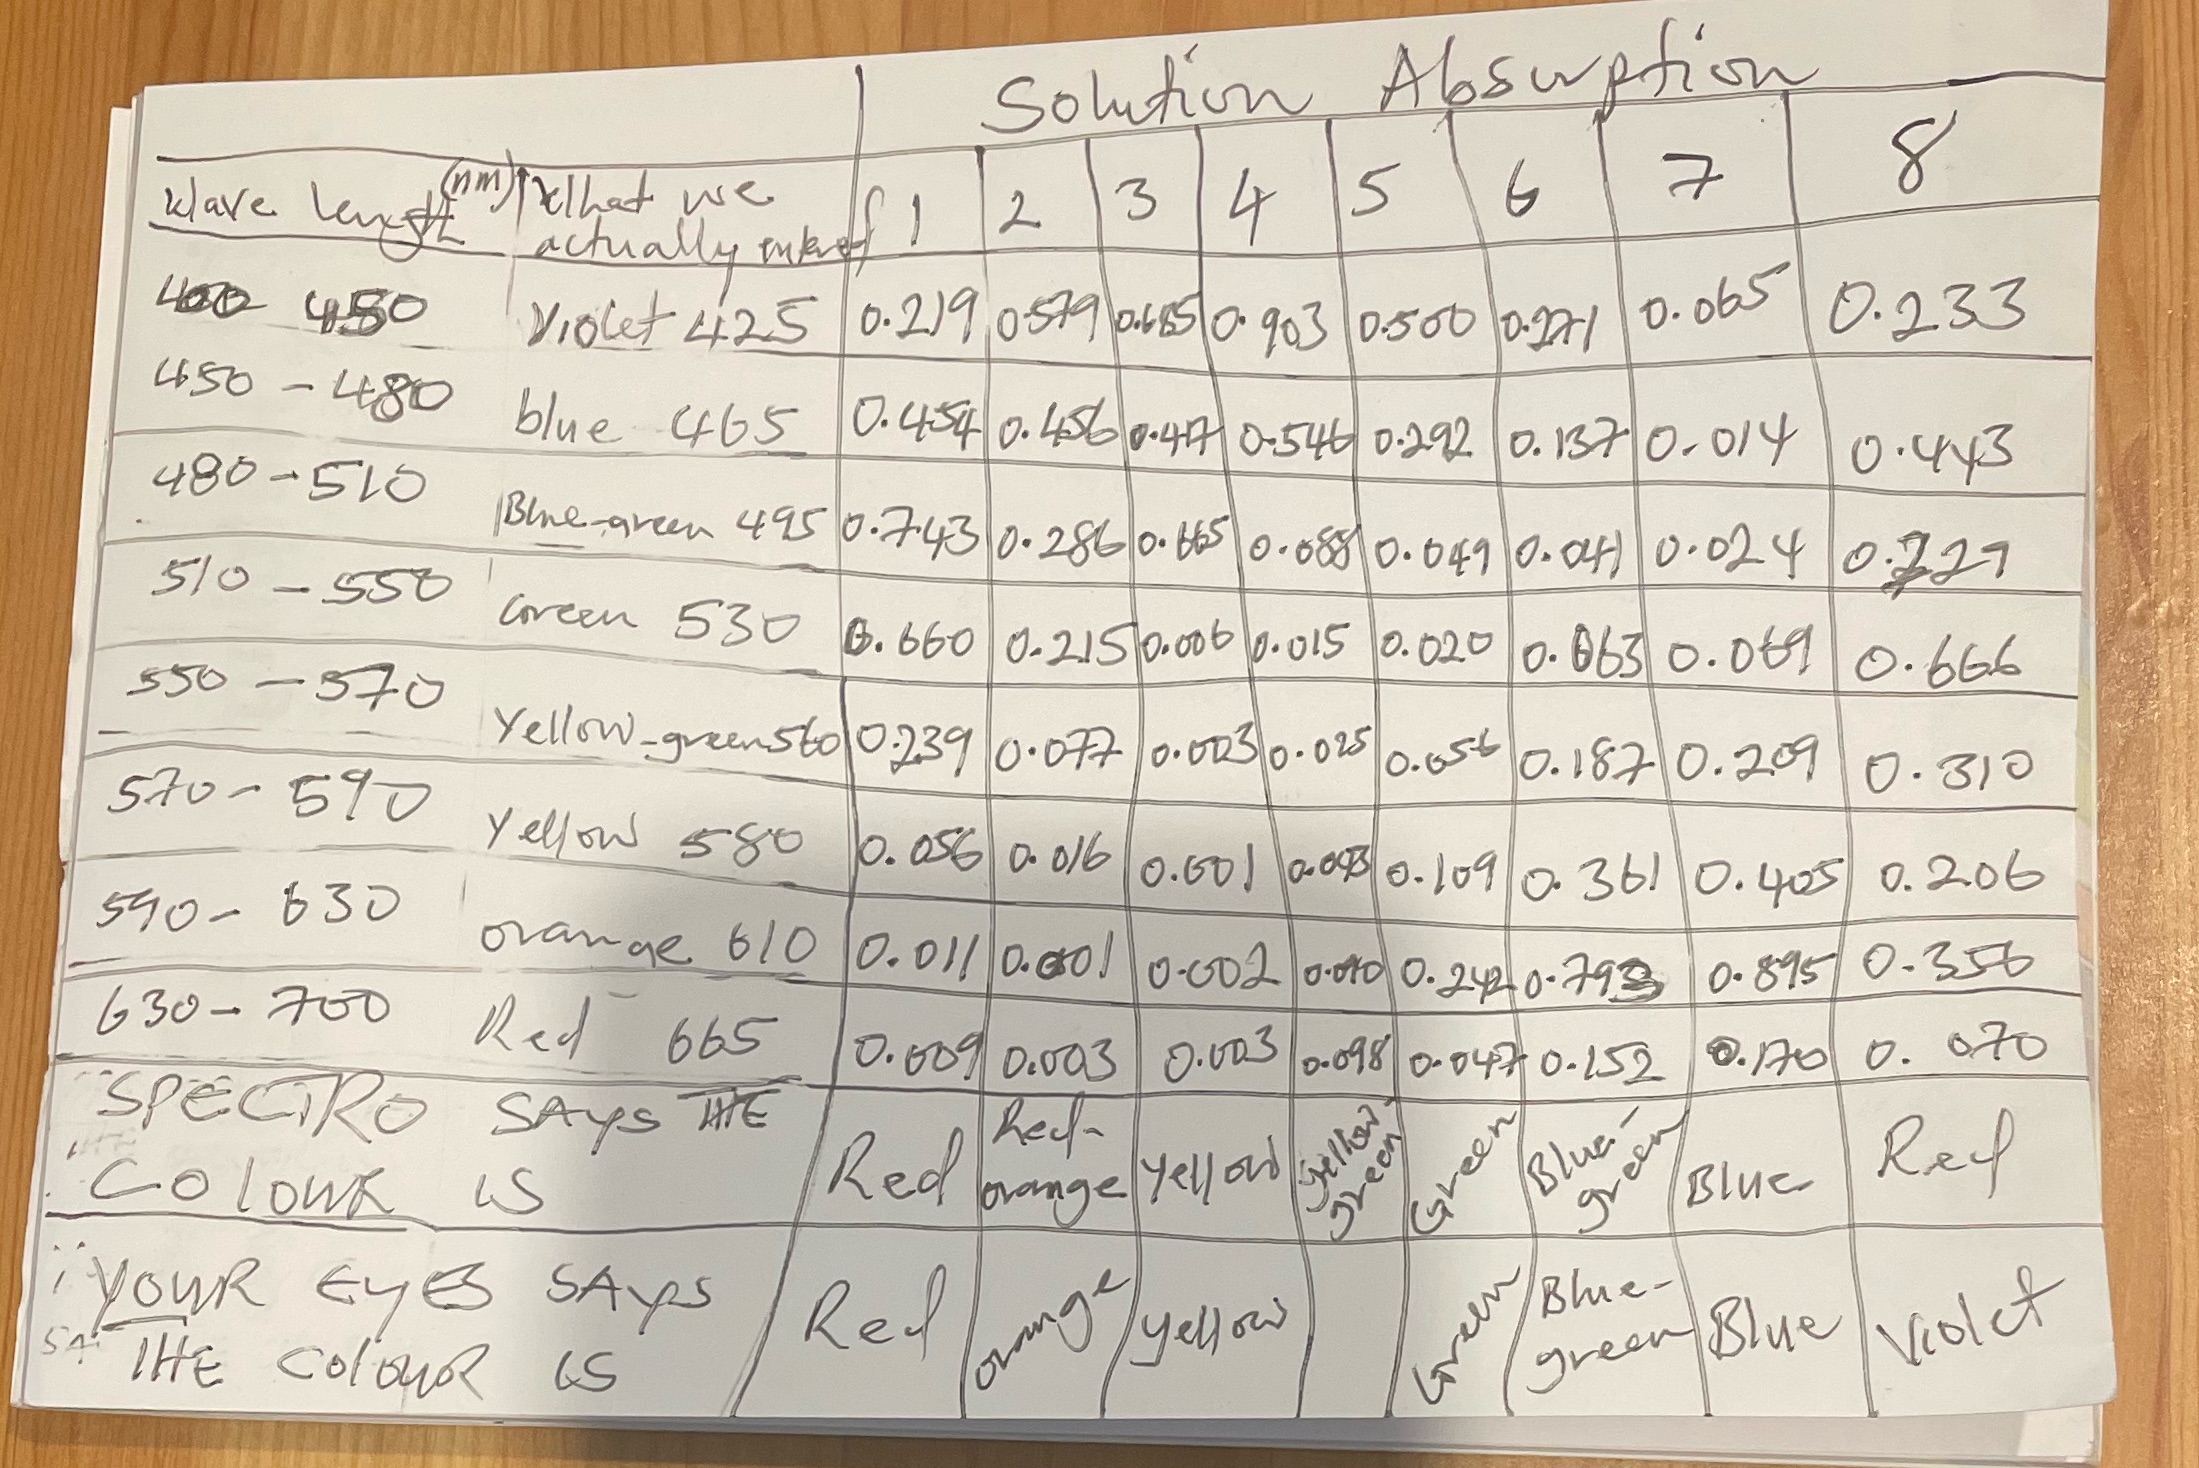 Solution Absorption
Wave length (nm) What we actually entered 1 2 3 4 5 6 7 8
450 Violet 425 0.219 0.579 0.685 0.903 0.500 0.271 0.065 0.233
450 - 480 blue 465 0.454 0.456 0.417 0.546 0.292 0.137 0.014 0.443
480 - 510 Blue-green 495 0.743 0.286 0.088 0.049 0.041 0.024
510 - 550 Green 530 0.660 0.215 0.006 0.015 0.020 0.063 0.069 0.666
550 - 570 Yellow-green 560 0.239 0.077 0.003 0.025 0.056 0.187 0.209 0.310
570 - 590 Yellow 580 0.056 0.016 0.001 0.109 0.361 0.405 0.206
590 - 630 orange 610 0.011 0.001 0.002 0.242 0.793 0.895 0.356
630 - 700 Red 665 0.009 0.003 0.003 0.098 0.047 0.152 0.170 0.070
SPECTRO SAys THE COLOUR iS Red Red-orange Yellow Yellow-green Green Blue-green Blue Red
YOUR EYES SAys THE COLOUR iS Red orange Yellow Green Blue-green Blue Violet